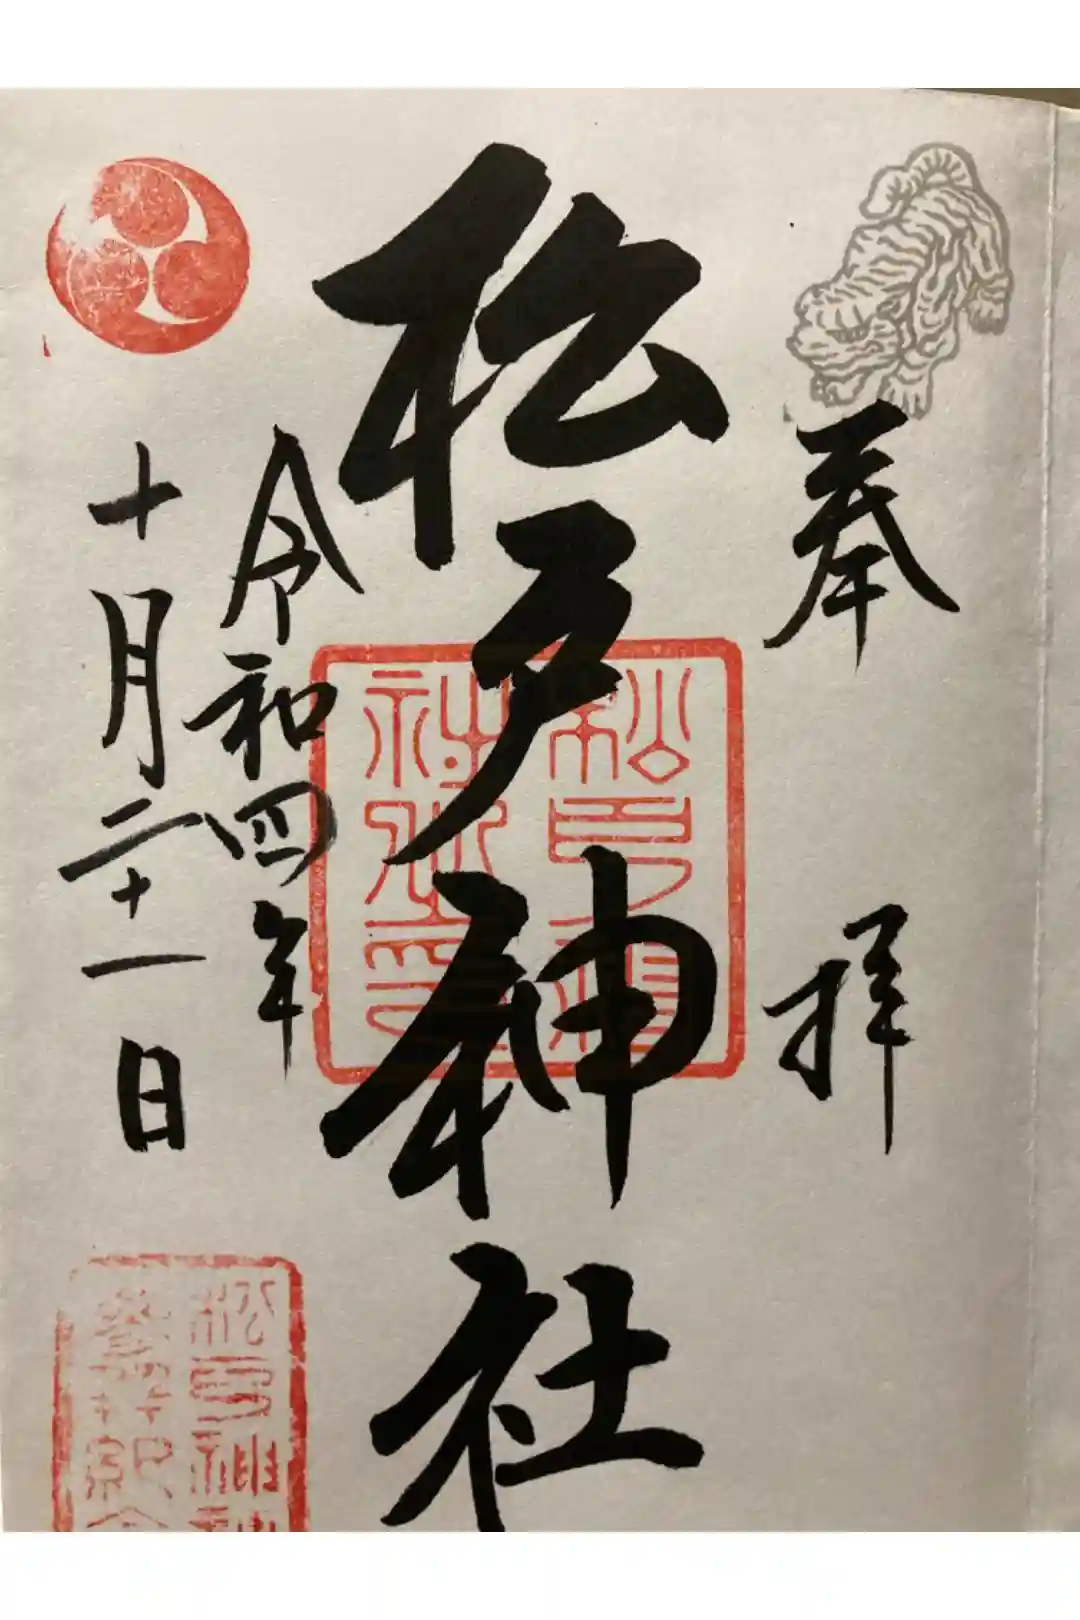 奉拝
松戸神社
令和四年
十月二十一日